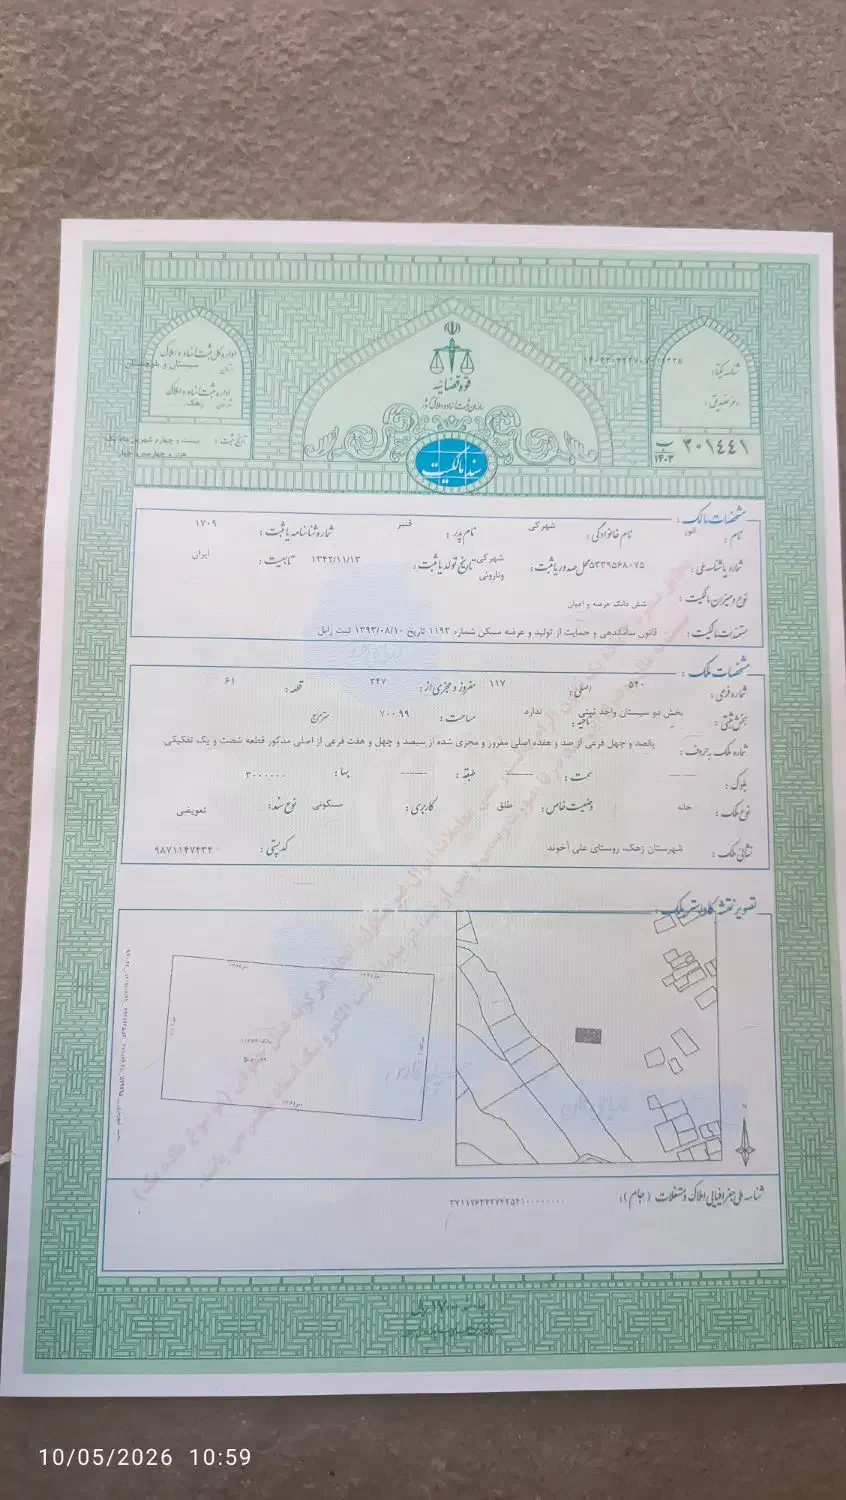 قوه قضائیه
سازمان ثبت اسناد و املاک کشور
سند مالکیت
اداره کل ثبت اسناد و املاک
استان سیستان و بلوچستان
اداره ثبت اسناد و املاک
شهرستان زهک
تاریخ ثبت : بیست و چهارم شهریور ماه یک
هزار و چهارصد و چهار
شناسه یکتا:
رمز تصدیق:
۳۰۱۴۴۱ ب ۱۴۰۳
مشخصات مالک :
نام : انور نام خانوادگی : شهرکی نام پدر : قنبر شماره شناسنامه یا ثبت : ۱۷۰۹
شماره یا شناسه ملی : ۵۳۳۹۵۶۸۰۷۵ محل صدور یا ثبت : شهرکی ونارویی تاریخ تولد یا ثبت : ۱۳۴۲/۱۱/۱۳ تابعیت : ایران
نوع و میزان مالکیت : شش دانگ عرصه و اعیان
مستندات مالکیت : قانون ساماندهی و حمایت از تولید و عرضه مسکن شماره ۱۱۹۳ تاریخ ۱۳۹۳/۰۸/۱۰ ثبت زابل
مشخصات ملک :
شماره فرعی : ۵۴۰ اصلی : ۱۱۷ مفروز و مجزی از : ۳۴۷ قطعه : ۶۱
بخش ثبتی : بخش دو سیستان ناحیه : واحد ثبتی ندارد مساحت : ۷۰۰.۹۹ متر مربع
شماره ملک به حروف : پانصد و چهل فرعی از صد و هفده اصلی مفروز و مجزی شده از سیصد و چهل و هفت فرعی از اصلی مذکور قطعه شصت و یک تفکیکی.
بلوک : ----- سمت : ----- طبقه : ----- بها : ۳۰۰۰۰۰۰
نوع ملک : خانه وضعیت خاص : طلق کاربری : مسکونی نوع سند : تعویضی
نشانی ملک : شهرستان زهک، روستای علی آخوند کد پستی : ۹۸۷۱۱۴۷۴۳۴
تصویر نقشه کاداستر ملک :
شناسه ملی جغرافیایی املاک و مستغلات (جام) :
10/05/2026 10:59